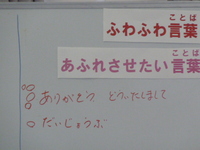 ふわふわ言葉
あふれさせたい言葉
ありがとう どういたしまして
だいじょうぶ